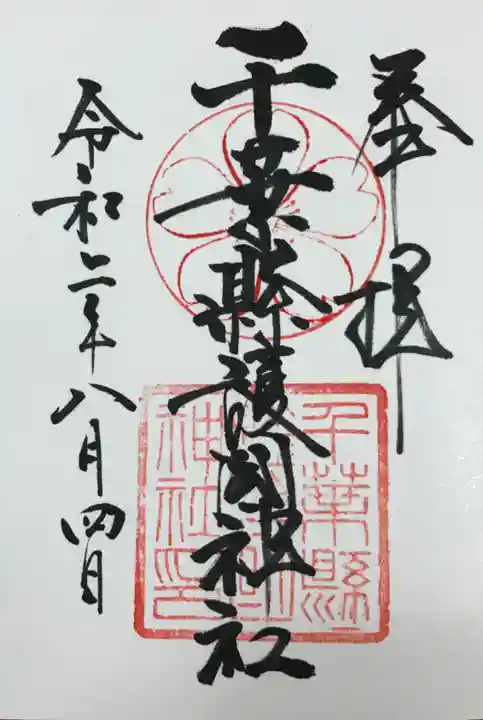 奉拝
千葉縣護國神社
千葉縣
護國
神社印
令和二年八月四日